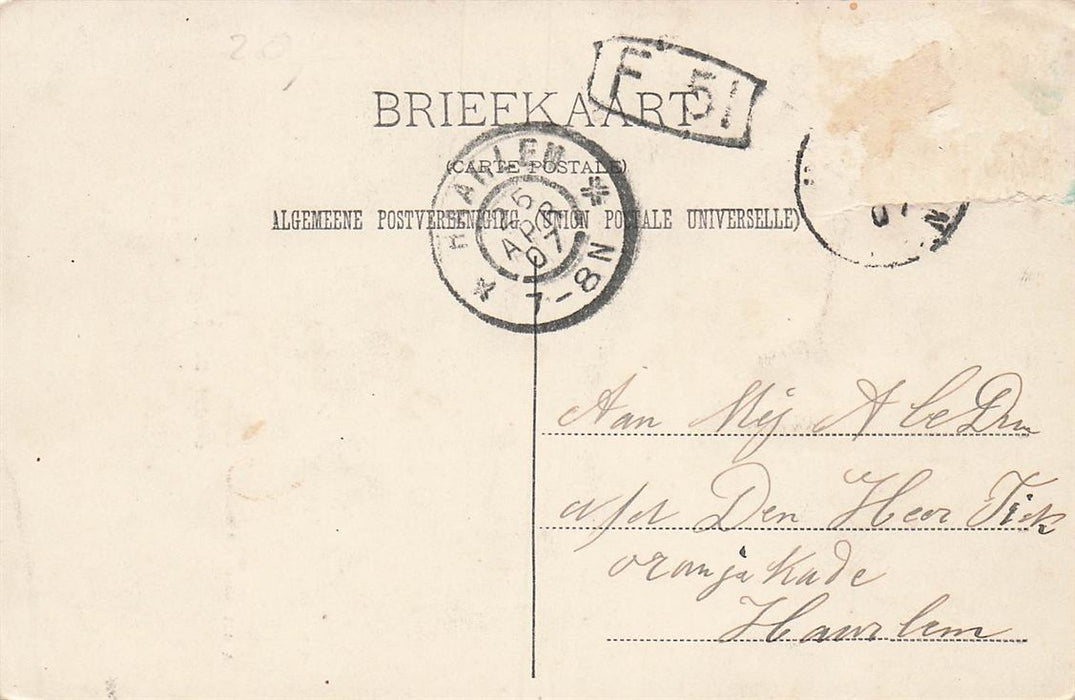 20
F 51
BRIEFKAART
(CARTE POSTALE)
ALGEMEENE POSTVEREENIGING (UNION POSTALE UNIVERSELLE)
HAARLEM
5 APR 07
7-8N
07
N
Aan Mej A
Den Heer
oranjekade
Haarlem